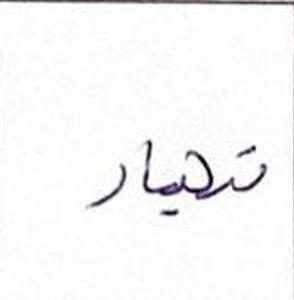 تدهیار